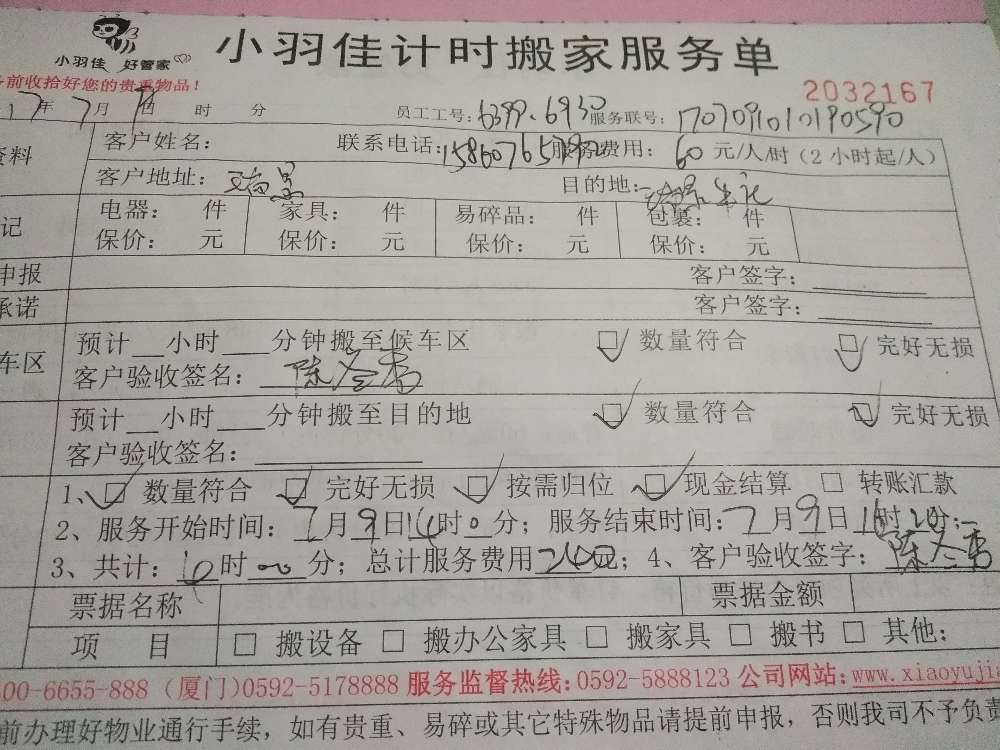 小羽佳 好管家
小羽佳计时搬家服务单
前收拾好您的贵重物品！
2032167
17年7月9日 时 分 员工工号： 服务联号：
资料 客户姓名： 联系电话： 服务费用：60元/人/时（2小时起/人）
客户地址： 目的地：
记 电器： 件 家具： 件 易碎品： 件 包裹： 件
保价： 元 保价： 元 保价： 元 保价： 元
申报 客户签字：
承诺 客户签字：
车区 预计__小时___分钟搬至候车区 ☑ 数量符合 ☑ 完好无损
客户验收签名：
预计__小时___分钟搬至目的地 ☑ 数量符合 ☑ 完好无损
客户验收签名：
1、☑ 数量符合 ☑ 完好无损 ☑ 按需归位 ☑ 现金结算 □ 转账汇款
2、服务开始时间：7月9日14时0分；服务结束时间：7月9日 时20分；
3、共计： 时 分；总计服务费用 元；4、客户验收签字：
票据名称 票据金额
项 目 □ 搬设备 □ 搬办公家具 □ 搬家具 □ 搬书 □ 其他：
00-6655-888（厦门）0592-5178888 服务监督热线：0592-5888123 公司网站：www.xiaoyujia
前办理好物业通行手续，如有贵重、易碎或其它特殊物品请提前申报，否则我司不予负责